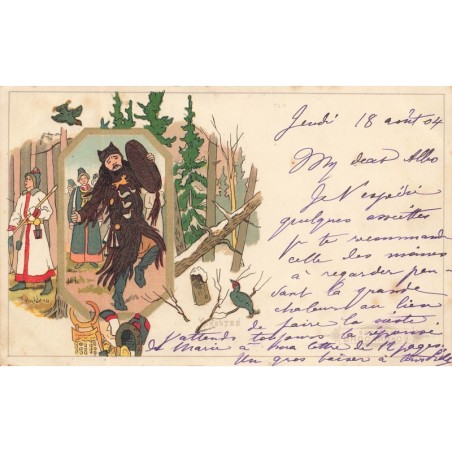 Jeudi 18 août 04
My dear Albo
Je t'expédie
quelques assiettes
Je te recommande
celle des moines
à regarder pen-
dant la grande
chaleur au lieu
de faire la sieste
J'attends toujours la réponse
de Marie à ma lettre de 12 pages.
Un gros baiser à